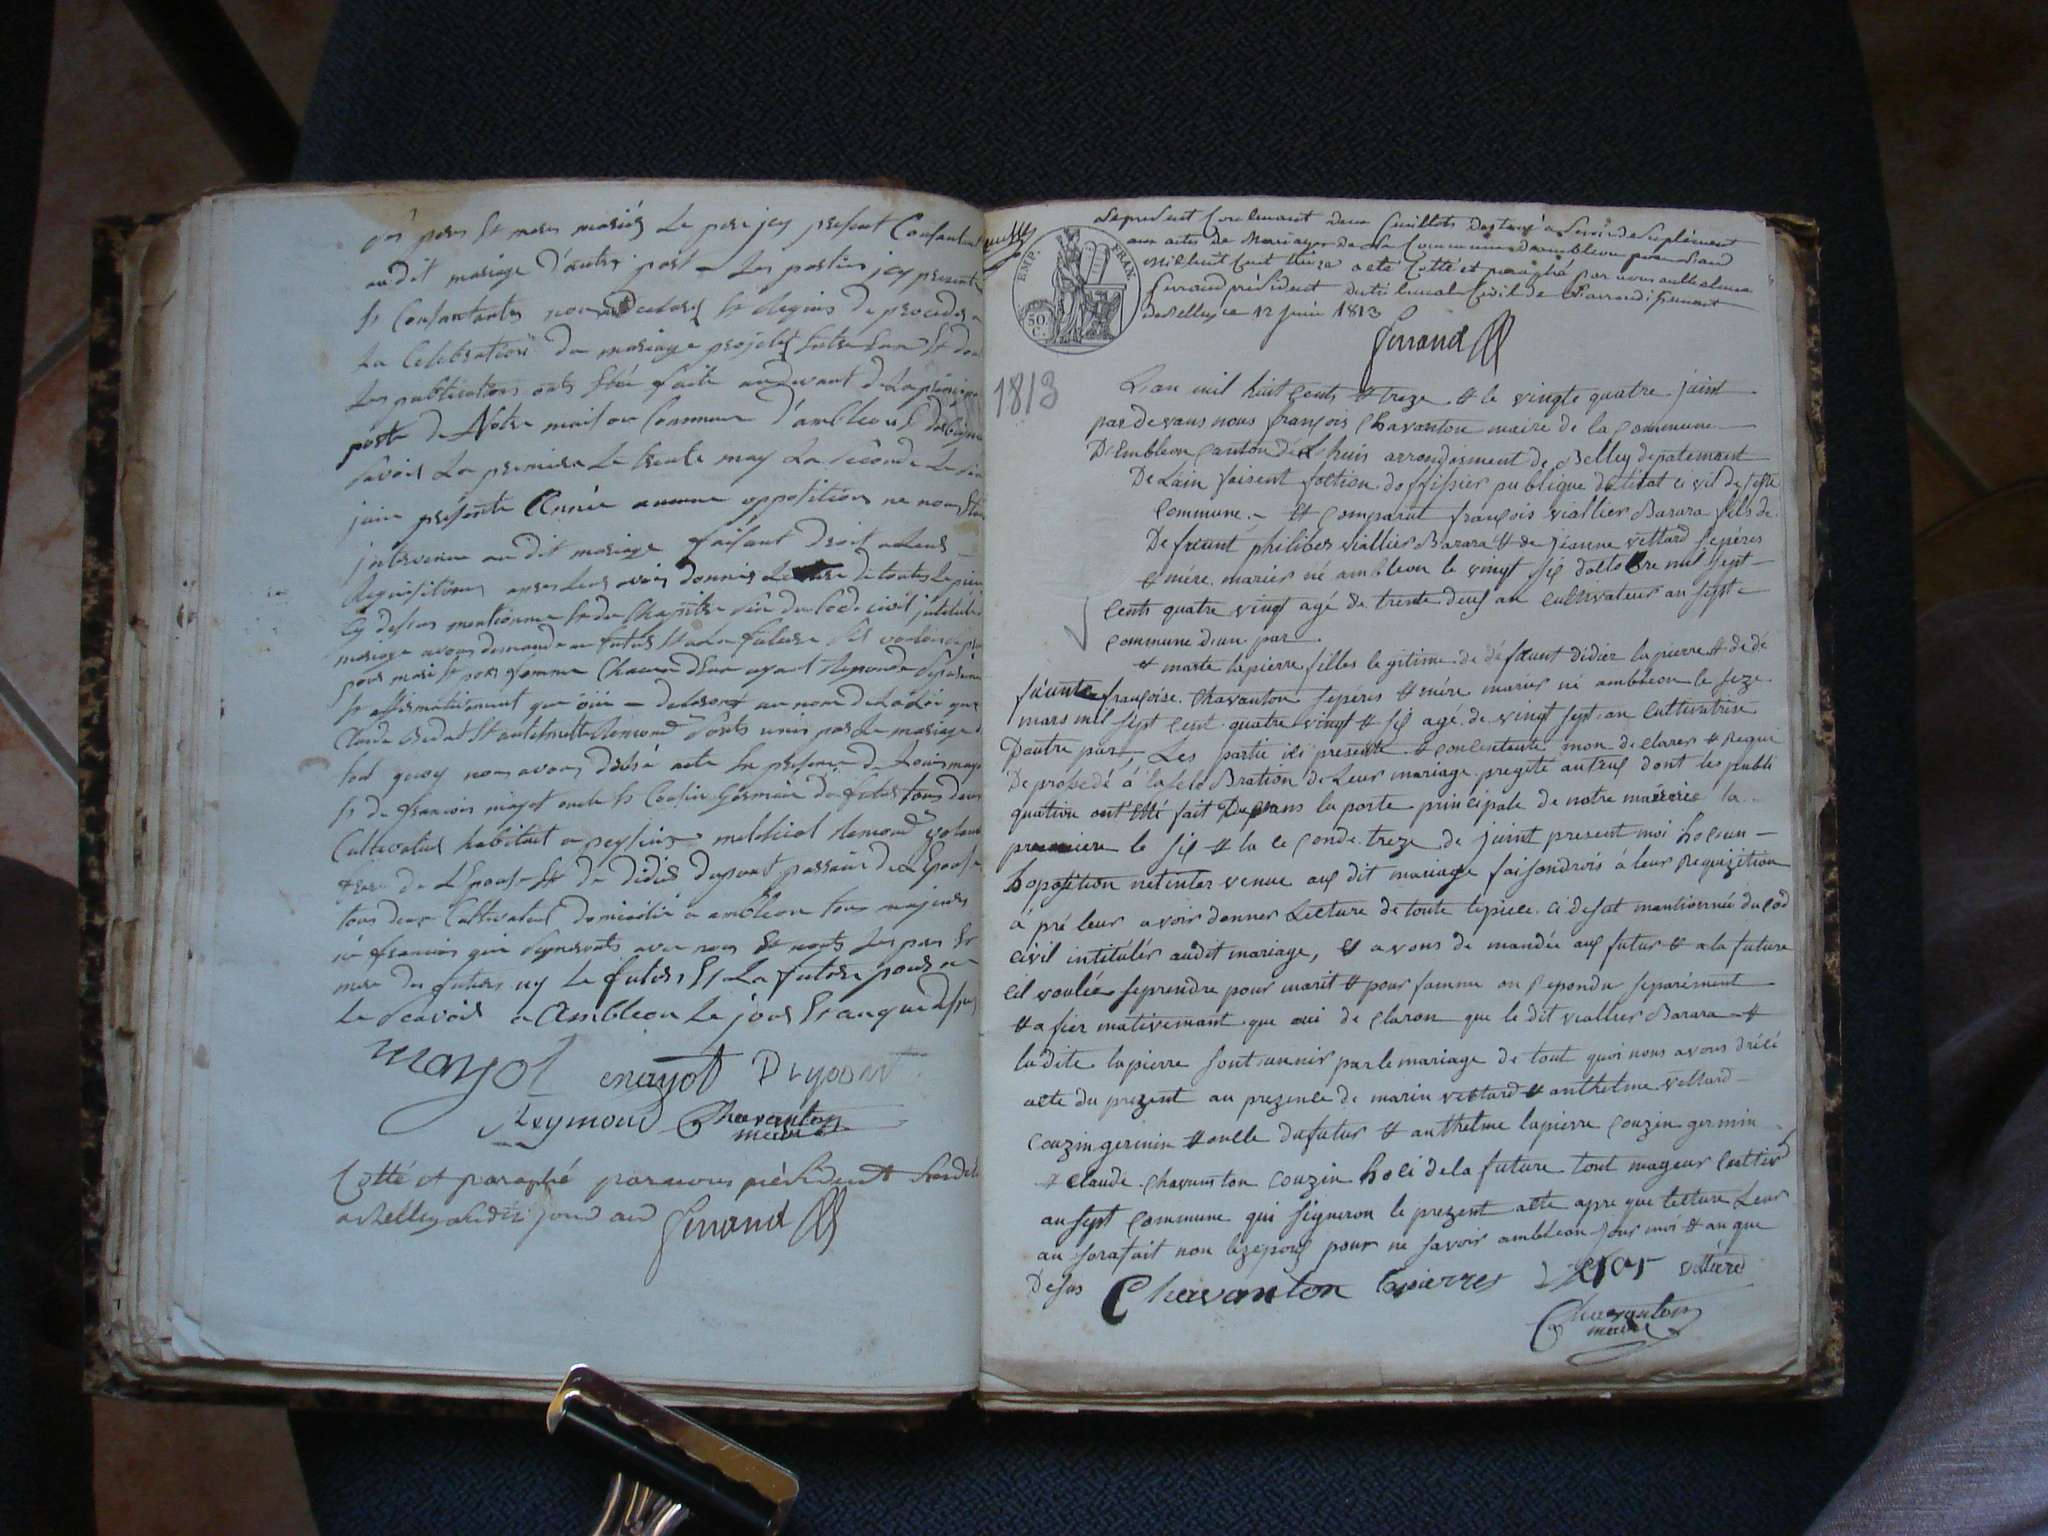 pères et mères mariés le père icy présent Consentant
au dit mariage d'autre part - Les parties icy presente
et Consantantes nous Declares et requis de procedes a
La Celebration du mariage projeté Entre Eux Et dont
Les publications onts Eté faite au devant de La principa
porte de Notre maison Commune d'ambleon Et
savoir La premiere Le trente may La Seconde Le six
juin présente Année aucune opposition ne nous Etan
intervenue au dit mariage faisant Droit a Leurs
Requisitions apres Leurs avoir donnés Lecture de toutes Les pieces
Cy dessus mentionnée Et du Chapitre six du Code civil intitulé du
mariage avons demandé au futurs Et a La future s'ils veulent se prendre
pour mari Et pour femme Chacun d'Eux ayant Repondu Séparément
Et affirmativement que oüi - declarons au nom de La Loi que
Claude Et antelmette Remond sonts unis par Le mariage de
tout quoy nous avons dréssé acte En presence de Louis mayot
Et de françois mayot oncle Et Cousin Germain du futur tous deux
Cultivateur habitant a peyzieu melchiol Remond
frere de L'Epouse Et de Didier Dupont de L'Epouse
tous deux Cultivateur domicilié a ambleon tous majeurs
françois qui signeronts avec nous Et nonts Les pere Et
mere des futurs ny Le futurs Et La future pour ne
Le Scavoir a Ambleon Le jour Et an que dessus
mayol mayot Dupont
Reymond Chavanton
maire
Cotté et paraphé par nous président
a Belley les dits jour et an Ferrand
Le present Contenant deux feuillets destiné a Servir de Suplément
aux actes de Mariages de la Commune d'ambleon pour L'an
mil huit Cent treize a été Cotté et paraphé par nous
Ferrand président du tribunal Civil de L'arrondissement
de Belley ce 12 juin 1813
Ferrand
EMP. FRAN.
50 C.
1813
L'an mil huit cents & treze & le vingte quatre juint
par devans nous françois Chavanton maire de la commune
D'Embleon canton de Lhuis arrondisment de Belley depatemant
De Lain faisent foction d'offisier publique de létat civil de sette
Commune - Et comparut françois viallier Barara fils de
De feuunt philiber viallier Barara & de jeanne vettard se péres
& mére marier né ambleon le vingt six d'altobre mil sept
Cents quatre vingt agé de trente deux an cultivateur an sept
commune d'un par
& marte lapierre filles legitime de défeunt didier lapierre & de dé
féunte françoise Chavanton se péres & mére marier né ambleon le seze
mars mil sept cent quatre vingt & six agé de vingt sept an cultivatrise
D'autre part, Les partie isi presente & consentente mon de clarer & requi
De prosedé à la selebration de Leur mariage progeté antreux dont les publi
quation ont Etté fait Devans la porte principale de notre mairerie la
premiere le six & la ce conde treze de juint present moi hocun
hoposition net inter venue aux dit mariage faisondrois à leur requizition
à pré leur avoir donner Lecture de toute lepiece ci desut mantionnée du cod
civil intitulér audit mariage, & avons de mandée aux futur & a la future
cil voulée seprendre pour marit & pour famme on repondu separément
& a fier mativemant que oui de claron que le dit viallier Barara &
ladite lapierre sont unir par le mariage de tout quoi nous avons drécé
acte du prezent au prezence de marin vettard & anthelme vettard
couzin germin & oncle du futur & anthelme lapierre couzin germin
& claude Chavanton couzin hoci de la future tout mageur cultiv
au sept commune qui signeron le prezent acte apre que lecture Leur
au sorafait non lezepoux pour ne savoir ambleon jour moi & an que
Desus Chavanton lapierres vettard
Chavanton
maire